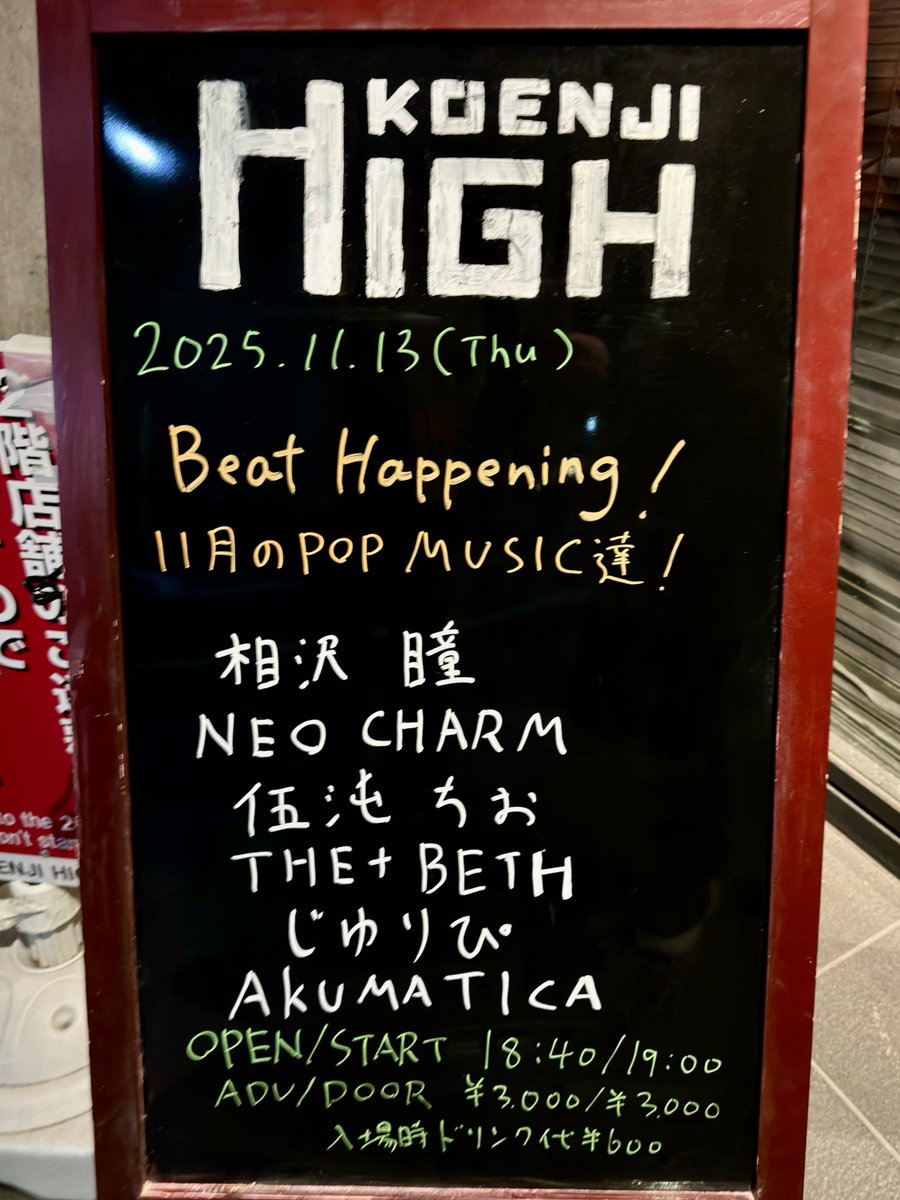 KOENJI
HIGH
2025.11.13(Thu)
Beat Happening!
11月のPOP MUSIC達!
相沢 瞳
NEO CHARM
伍沌 ちお
THE+ BETH
じゅりぴ
AKUMATICA
OPEN/START 18:40/19:00
ADV/DOOR ¥3,000/¥3,000
入場時ドリンク代¥600
2階店舗
to the 2
on't star
ENJI HIG